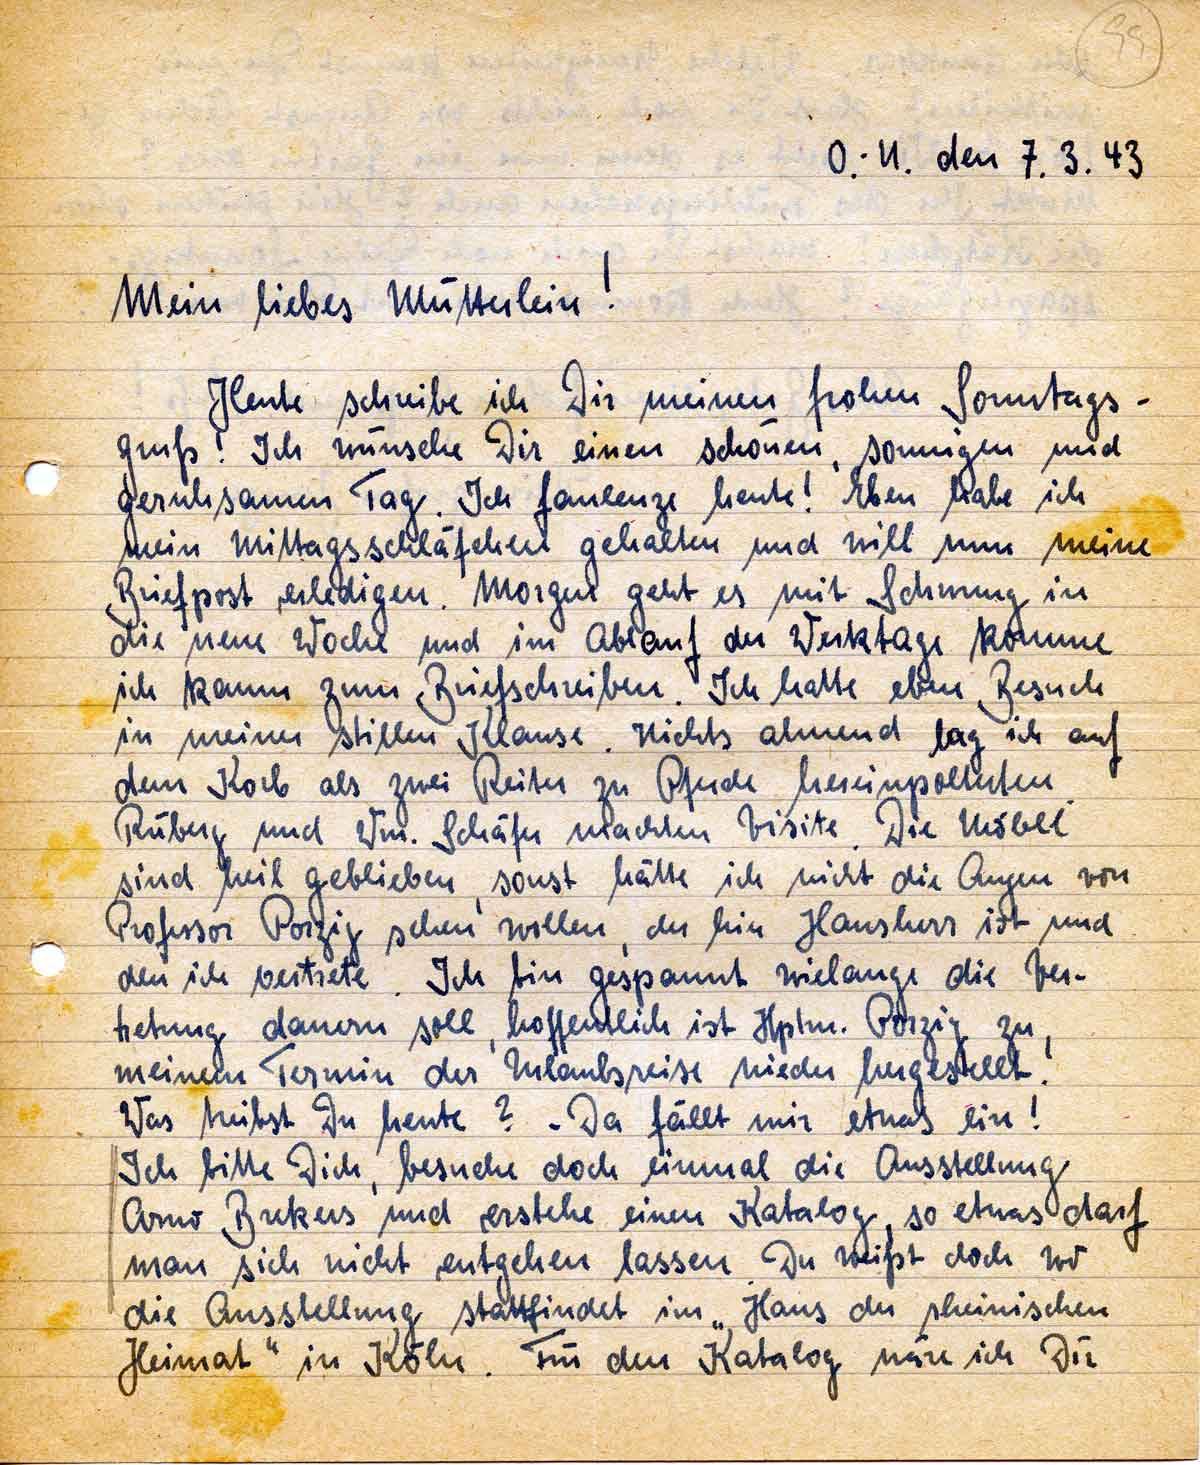 99
O.-U. den 7.3.43
Mein liebes Mütterlein!
Heute schreibe ich Dir meinen frohen Sonntags-
gruß! Ich wünsche Dir einen schönen, sonnigen und
geruhsamen Tag. Ich faulenze heute! Eben habe ich
mein Mittagsschläfchen gehalten und will nun meine
Briefpost erledigen. Morgen geht es mit Schwung in
die neue Woche und im Ablauf der Werktage komme
ich kaum zum Briefschreiben. Ich hatte eben Besuch
in meiner stillen Klause. Nichts ahnend lag ich auf
dem Korb als zwei Reiter zu Pferde hereinpolterten.
Rüberg und Wm. Schäfer machten Visite. Die Möbel
sind heil geblieben, sonst hätte ich nicht die Augen von
Professor Porzig sehen wollen, der hier Hausherr ist und
den ich vertrete. Ich bin gespannt wielange die Ver-
tretung dauern soll, hoffentlich ist Hptm. Porzig zu
meinem Termin der Urlaubsreise wieder hergestellt!
Was treibst Du heute? - Da fällt mir etwas ein!
Ich bitte Dich, besuche doch einmal die Ausstellung
Arno Brekers und erstehe einen Katalog, so etwas darf
man sich nicht entgehen lassen. Du weißt doch wo
die Ausstellung stattfindet im „Haus der rheinischen
Heimat“ in Köln. Für den Katalog wäre ich Dir